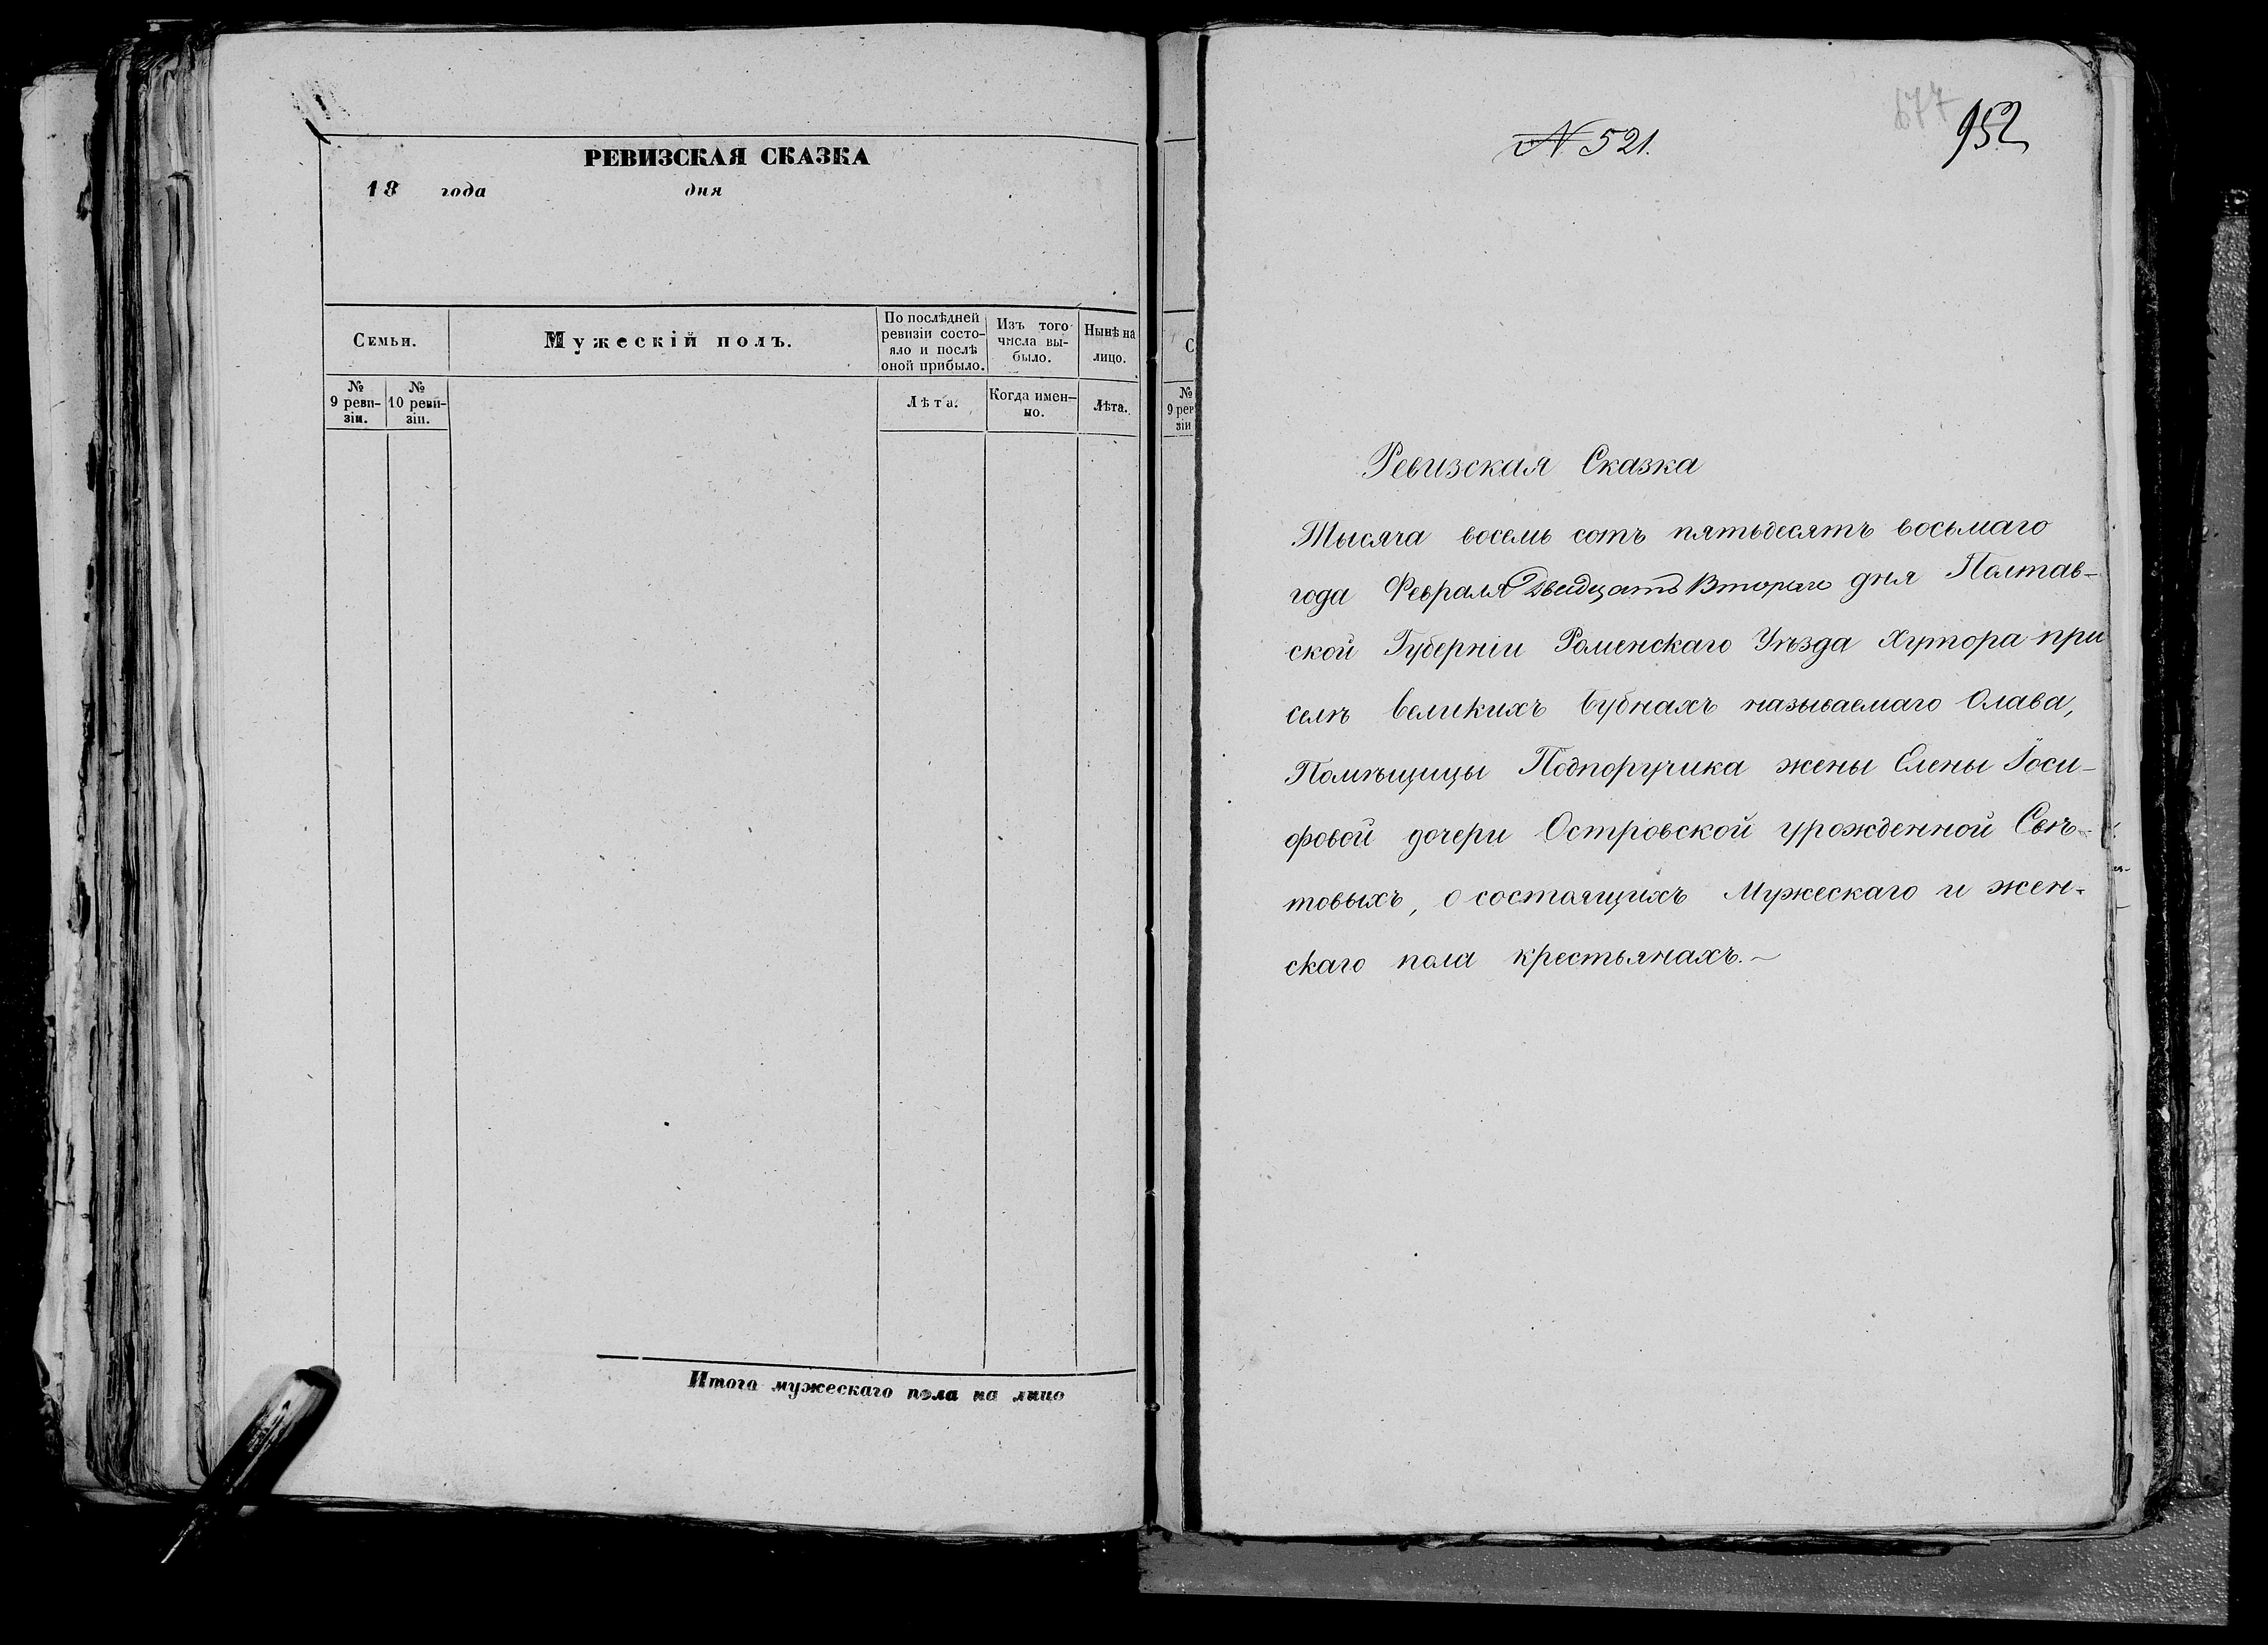 РЕВИЗСКАЯ СКАЗКА
18 года дня
Семьи.
Мужескій полъ.
По послѣдней
ревизіи состо-
яло и послѣ
оной прибыло.
Изъ того
числа вы-
было.
Нынѣ на
лицо.
№
9 реви-
зіи.
№
10 реви-
зіи.
Лѣта.
Когда имен-
но.
Лѣта.
Итого мужескаго пола на лицо
С
№
9 рев
зіи
677
952
№ 521.
Ревизская Сказка
Тысяча восемь сотъ пятьдесятъ восьмаго
года Февраля Двадцать Втораго дня Полтав-
ской Губерніи Роменскаго Уѣзда Хутора при
селѣ Великихъ Бубнахъ называемаго Олава,
Помѣщицы Подпоручика жены Елены Іоси-
фовой дочери Островской урожденной Свѣ-
товыхъ, о состоящихъ Мужескаго и жен-
скаго пола крестьянахъ.~